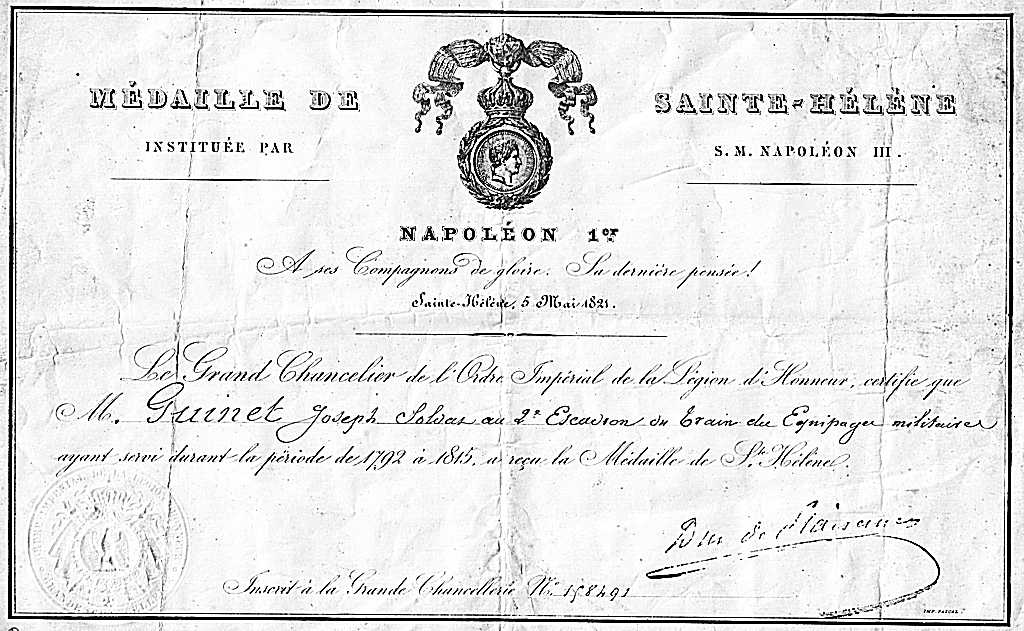 MÉDAILLE DE SAINTE-HÉLÈNE
INSTITUÉE PAR S. M. NAPOLÉON III.
NAPOLÉON 1er
A ses Compagnons de gloire. Sa dernière pensée!
Sainte-Hélène, 5 Mai 1821.
Le Grand Chancelier de l'Ordre Impérial de la Légion d'Honneur, certifie que
M. Guinet Joseph Soldat au 2e Escadron du train des Equipages militaires
ayant servi durant la période de 1792 à 1815, a reçu la Médaille de Ste Hélène.
Duc de Plaisance
Inscrit à la Grande Chancellerie No 158491
IMP. PASCAL